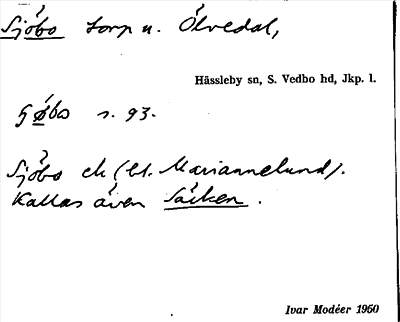 Sjöbo torp u. Ölvedal,
Hässleby sn, S. Vedbo hd, Jkp. l.
Gøbo s. 93.
Sjöbo ek (bl. Mariannelund).
Kallas även Säcken.
Ivar Modéer 1960